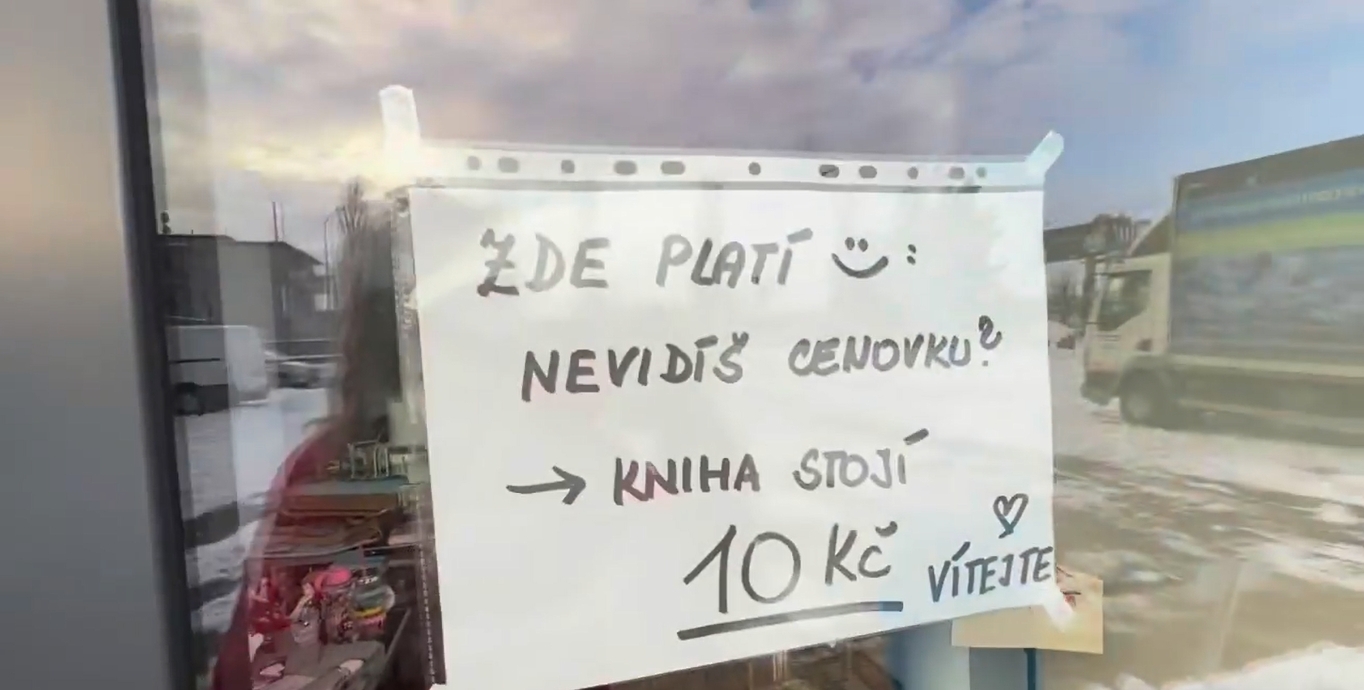 ZDE PLATÍ :
NEVIDÍŠ CENOVKU?
→ KNIHA STOJÍ
10 Kč
VÍTEJTE